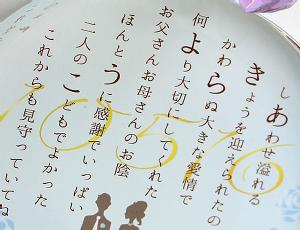 しあわせ溢れる
きょうを迎えられたの
かわらぬ大きな愛情で
何より大切にしてくれた
お父さんお母さんのお陰
ほんとうに感謝でいっぱい
二人のこどもでよかった
これからも見守っていてね
10516